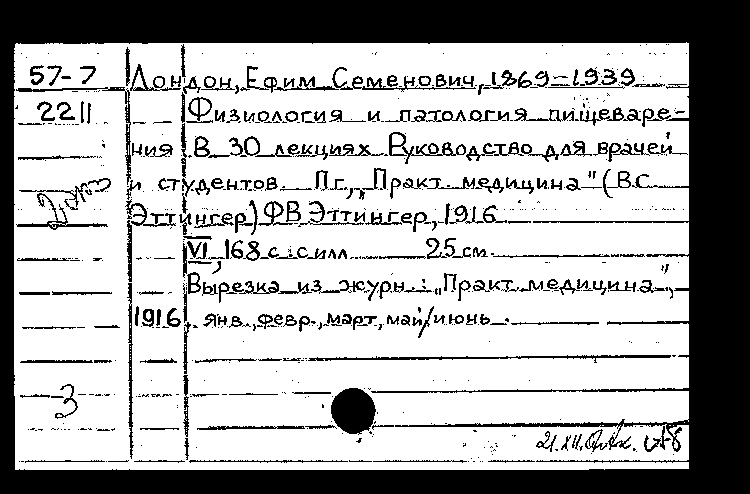 57-7 Лондон, Ефим Семенович, 1869-1939
2211 Физиология и патология пищеваре-
ния В 30 лекциях Руководство для врачей
и студентов. Пг., „Практ. медицина" (В.С.
Эттингер) ФВ Эттингер, 1916
VI, 168 с. с илл. 25 см.
Вырезка из журн.: „Практ. медицина",
1916, янв., февр., март, май/июнь.
3
21.XII.